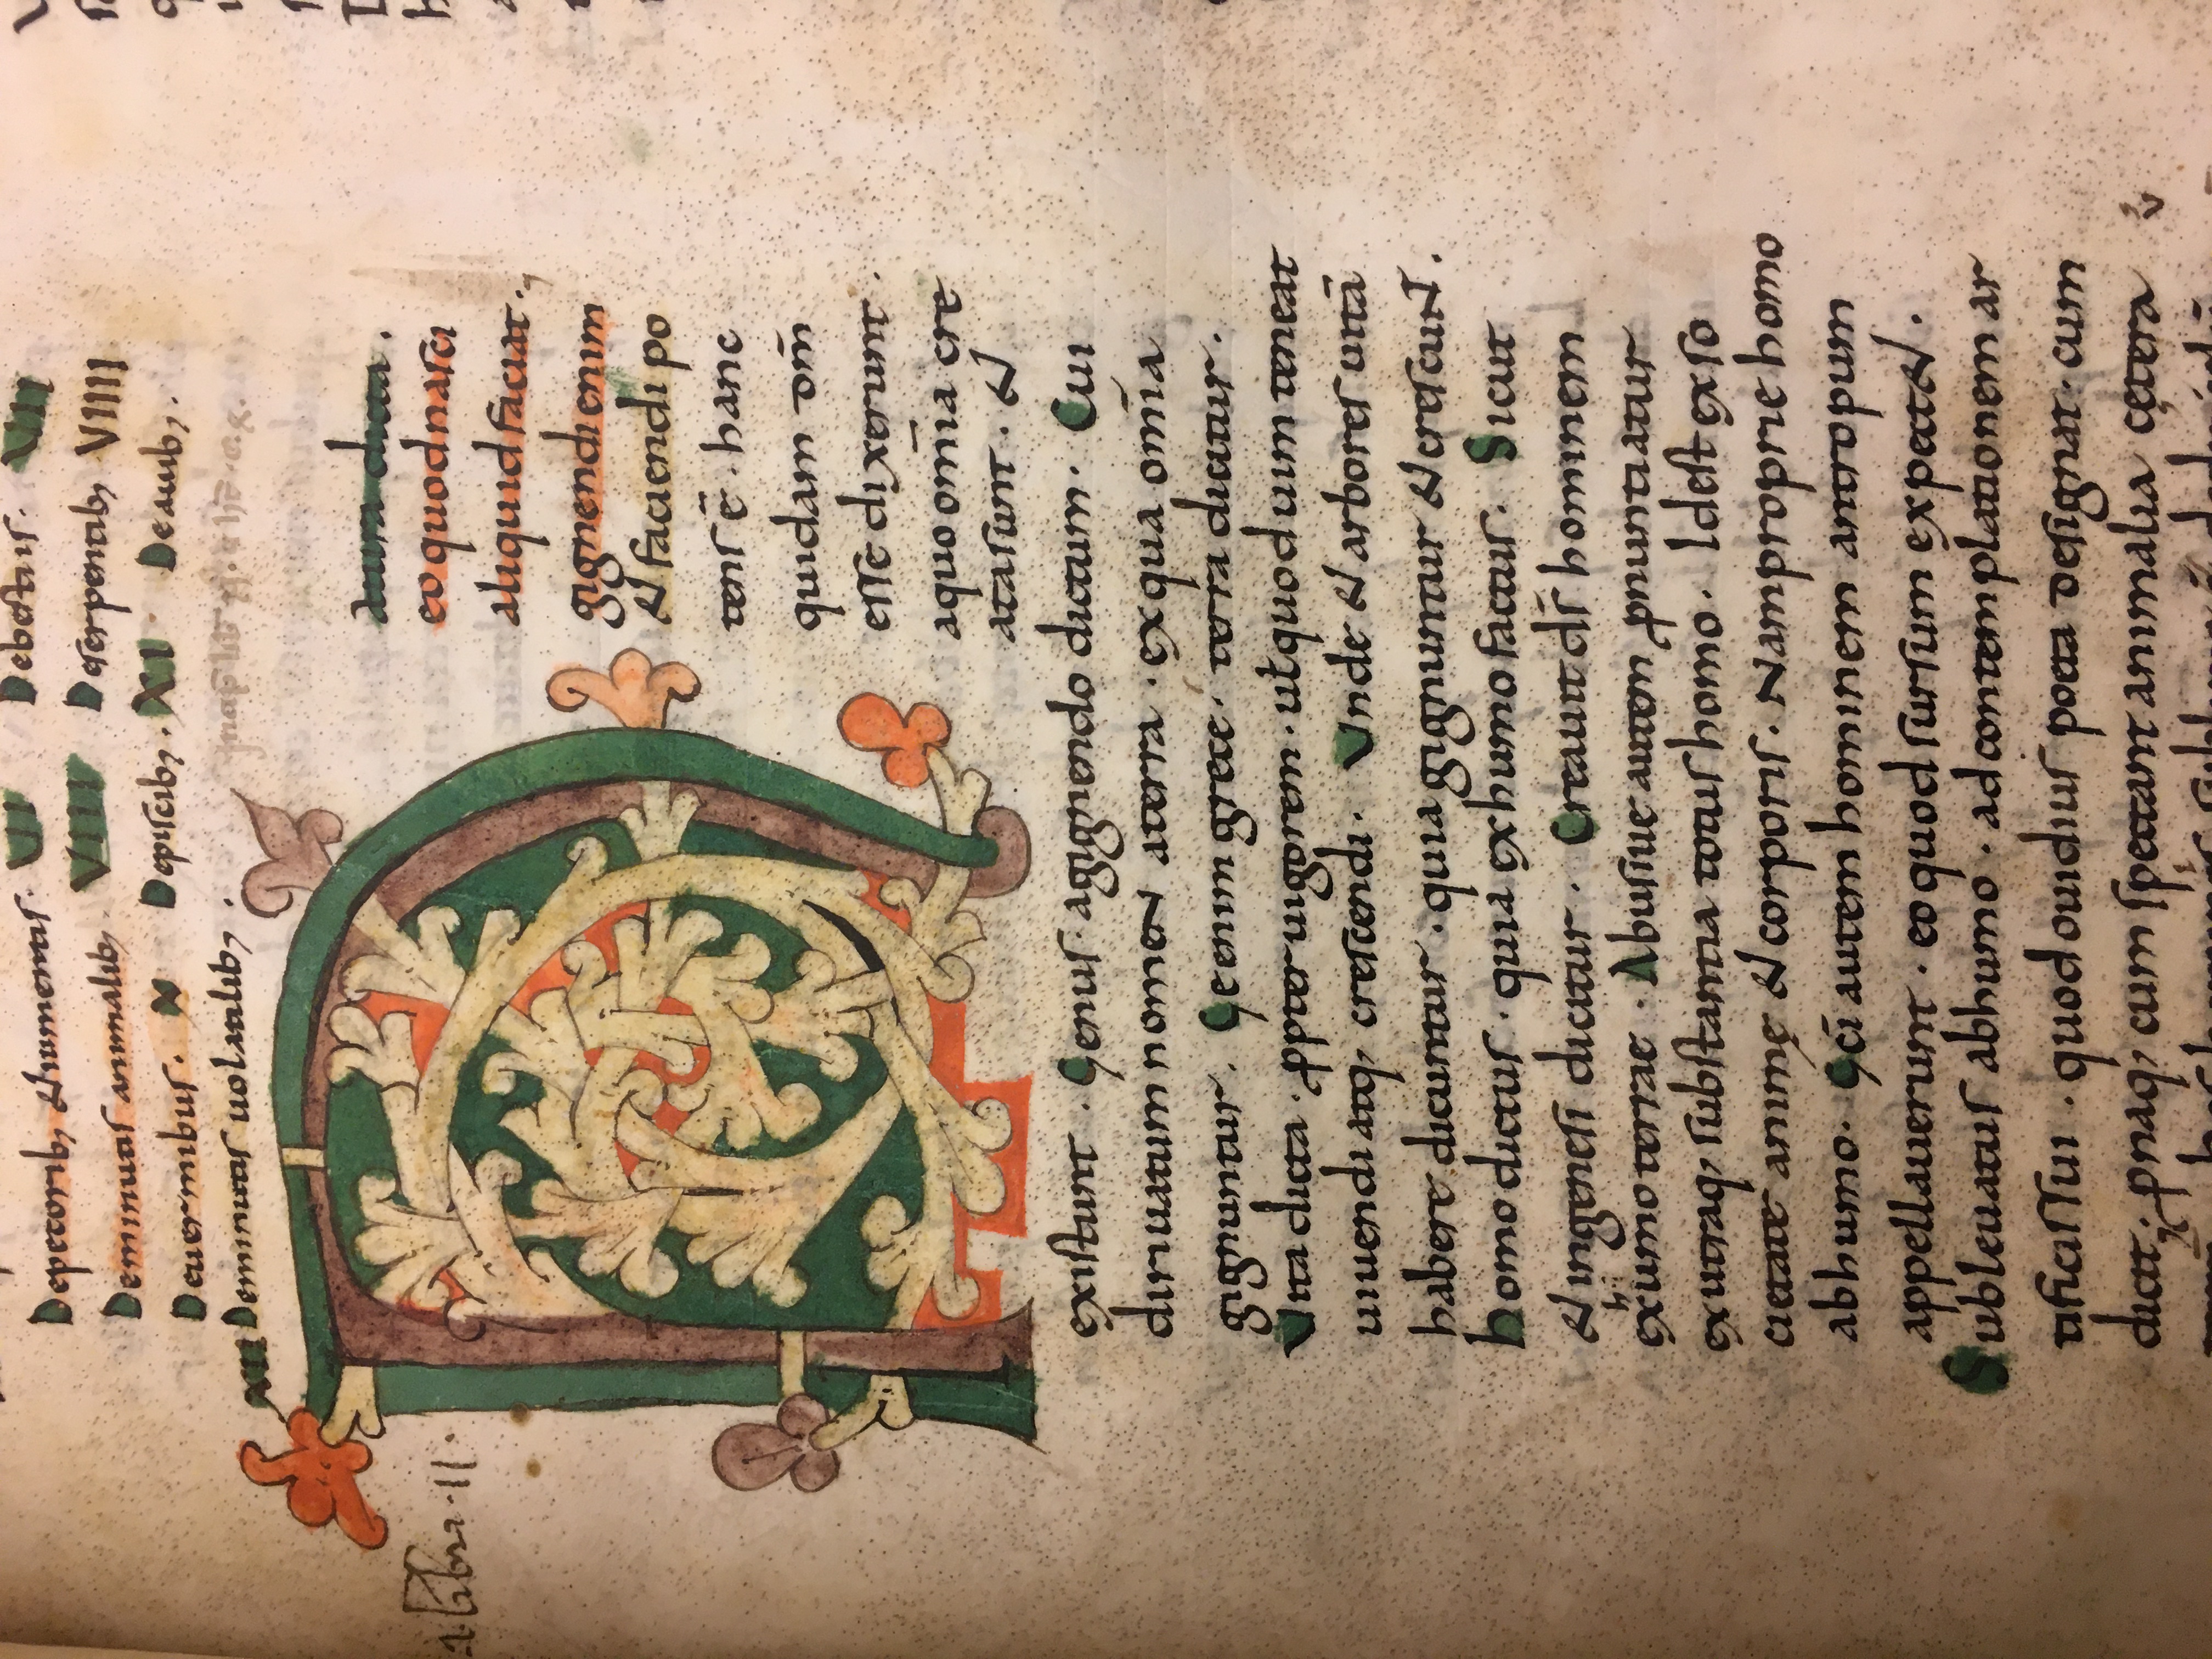 Depecorib; & iumentis. VII Debestiis. VII
Deminutis animalib; VIII Deserpentib; VIIII
Deuermibus. X Depiscib;. XII. Deauib;.
XIII Deminutis uolatilib;.
Natura dicta.
eo quod nasci
aliquid faciat.
gignendi enim
& faciendi po
tens ē. hanc
quidam dm̄
esse dixerunt.
aquo om̄ia cre
ata sunt. &
existunt. Genus. agignendo dictum. Cui
diriuatum nomen aterra. exqua om̄ia
gignuntur. Ge enim grece. terra dicitur.
Vita dicta. ꝓpter uigorem. utquod uim teneat
uiuendi atq; crescendi. Vnde & arbores uitā
habere dicuntur. quia gignuntur & crescunt.
homo dictus. quia exhumo factus. Sicut
& ingenesi dicitur. Creauit dr̄ hominem
exumo terrae. Abusiue autem pnuntiatur
exutraq; substantia totus homo. Idest exso
cietate animę & corporis. Nam proprie homo
abhumo. Gc̄i autem hominem antropum
appellauerunt. eo quod sursum expectet.
Subleuatus abhumo. adcontemplationem ar
tificis sui. quod ouidius poeta designat. cum
dicit. pnaq; cum spectant animalia cętera